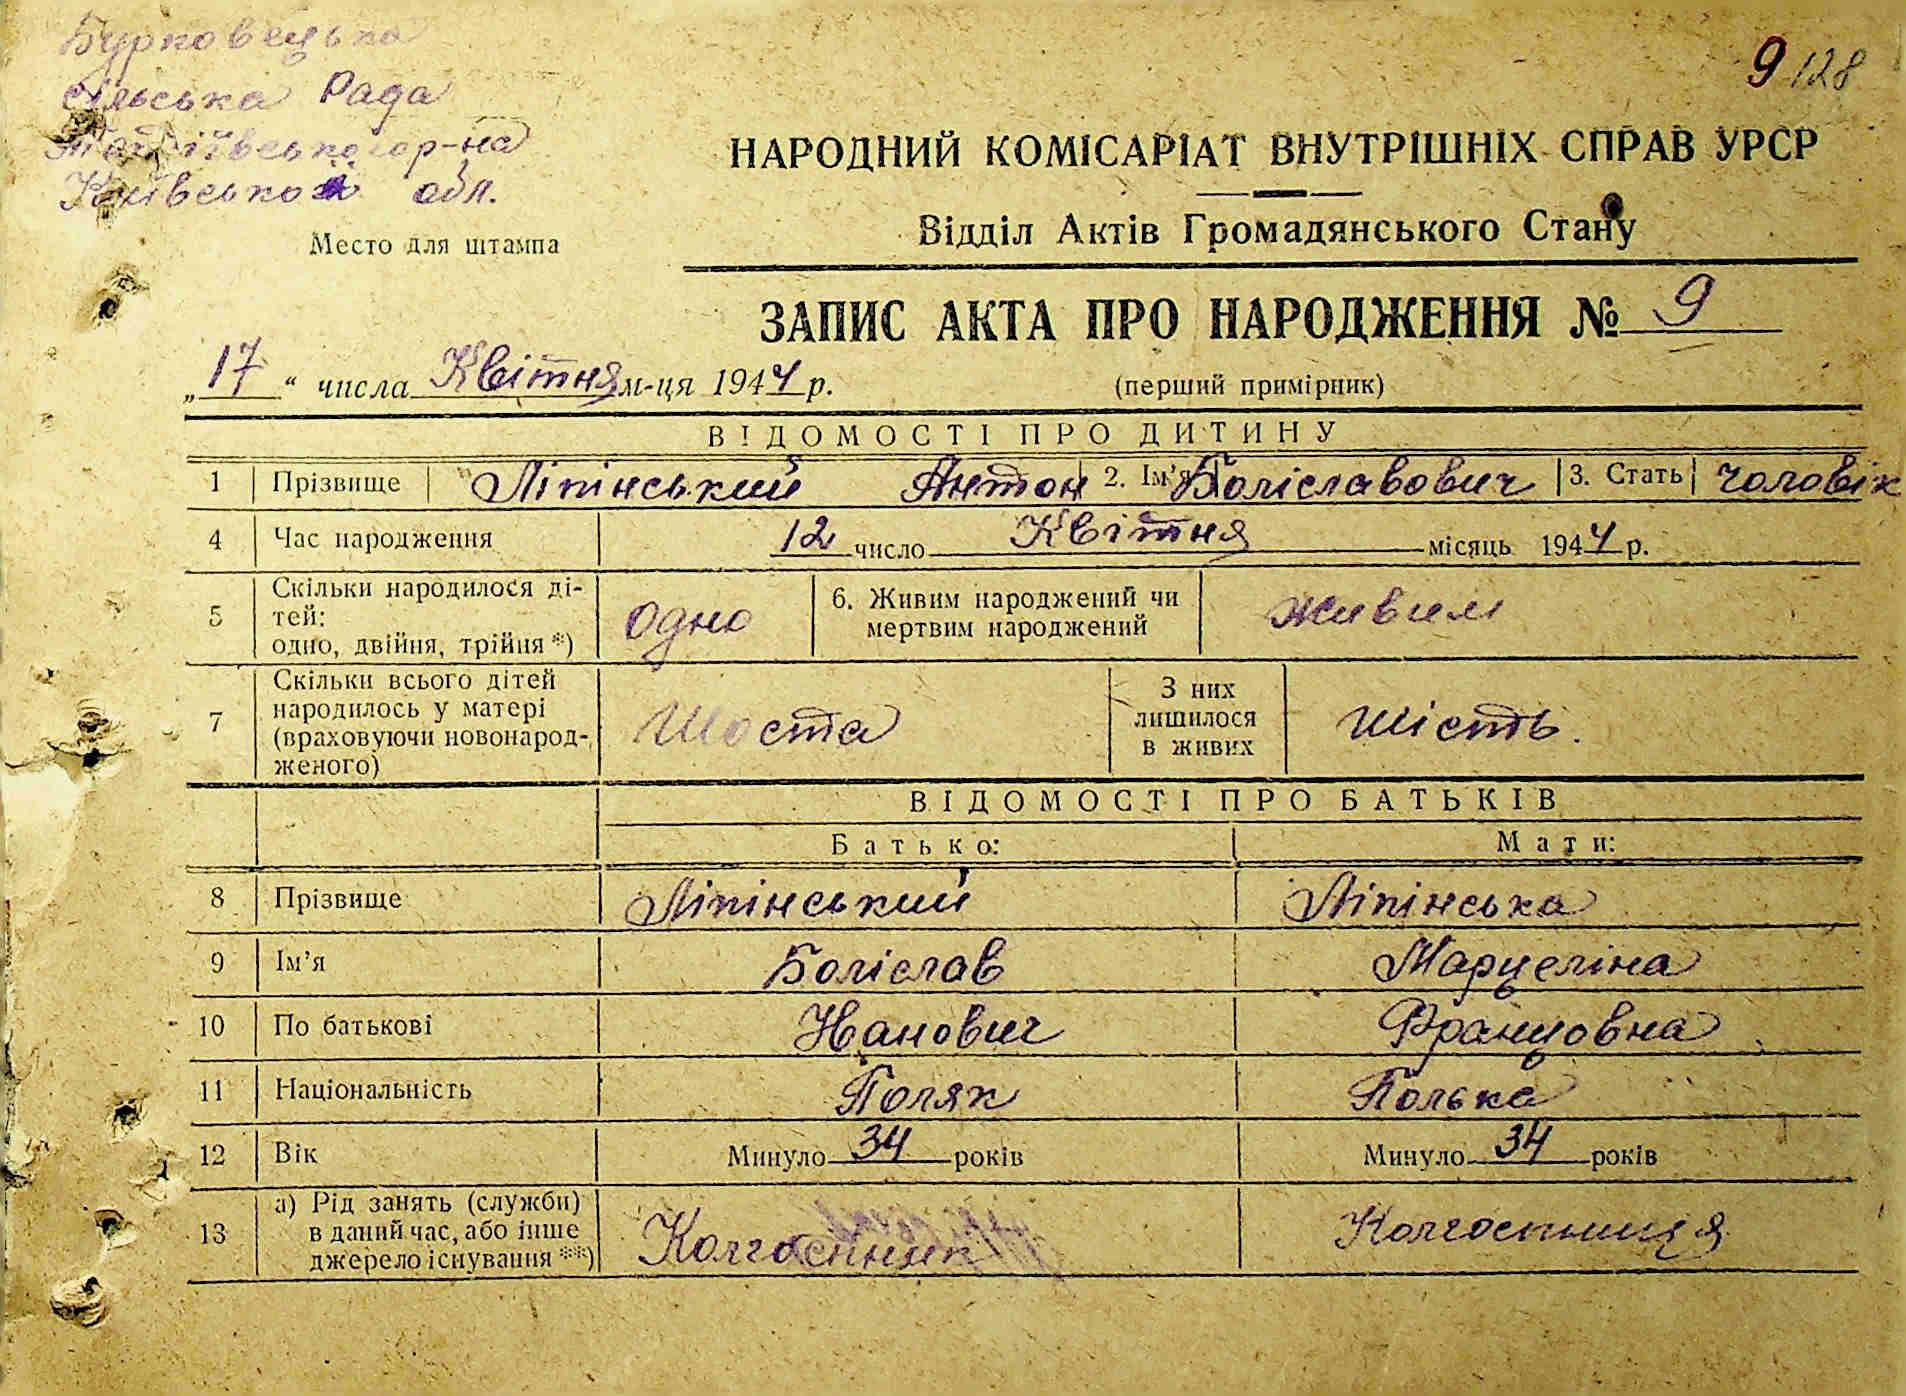 Бурковецька
сільська Рада
р-на
Київської обл.
Место для штампа
9 128
НАРОДНИЙ КОМІСАРІАТ ВНУТРІШНІХ СПРАВ УРСР
Відділ Актів Громадянського Стану
ЗАПИС АКТА ПРО НАРОДЖЕННЯ № 9
„17“ числа Квітня м-ця 1944 р.
(перший примірник)
ВІДОМОСТІ ПРО ДИТИНУ
1 Прізвище Ліпінський Антон 2. Ім’я Боліславович 3. Стать чоловік
4 Час народження 12 число Квітня місяць 1944 р.
5 Скільки народилося ді-
тей:
одно, двійня, трійня *) одно
6. Живим народжений чи
мертвим народжений живим
7 Скільки всього дітей
народилось у матері
(враховуючи новонарод-
женого) Шоста
З них
лишилося
в живих шість.
ВІДОМОСТІ ПРО БАТЬКІВ
Батько: Мати:
8 Прізвище Ліпінський Ліпінська
9 Ім’я Боліслав Марцеліна
10 По батькові Іванович Францовна
11 Національність Поляк Полька
12 Вік Минуло 34 років Минуло 34 років
13 а) Рід занять (служби)
в даний час, або інше
джерело існування **) Колгоспник Колгоспниця